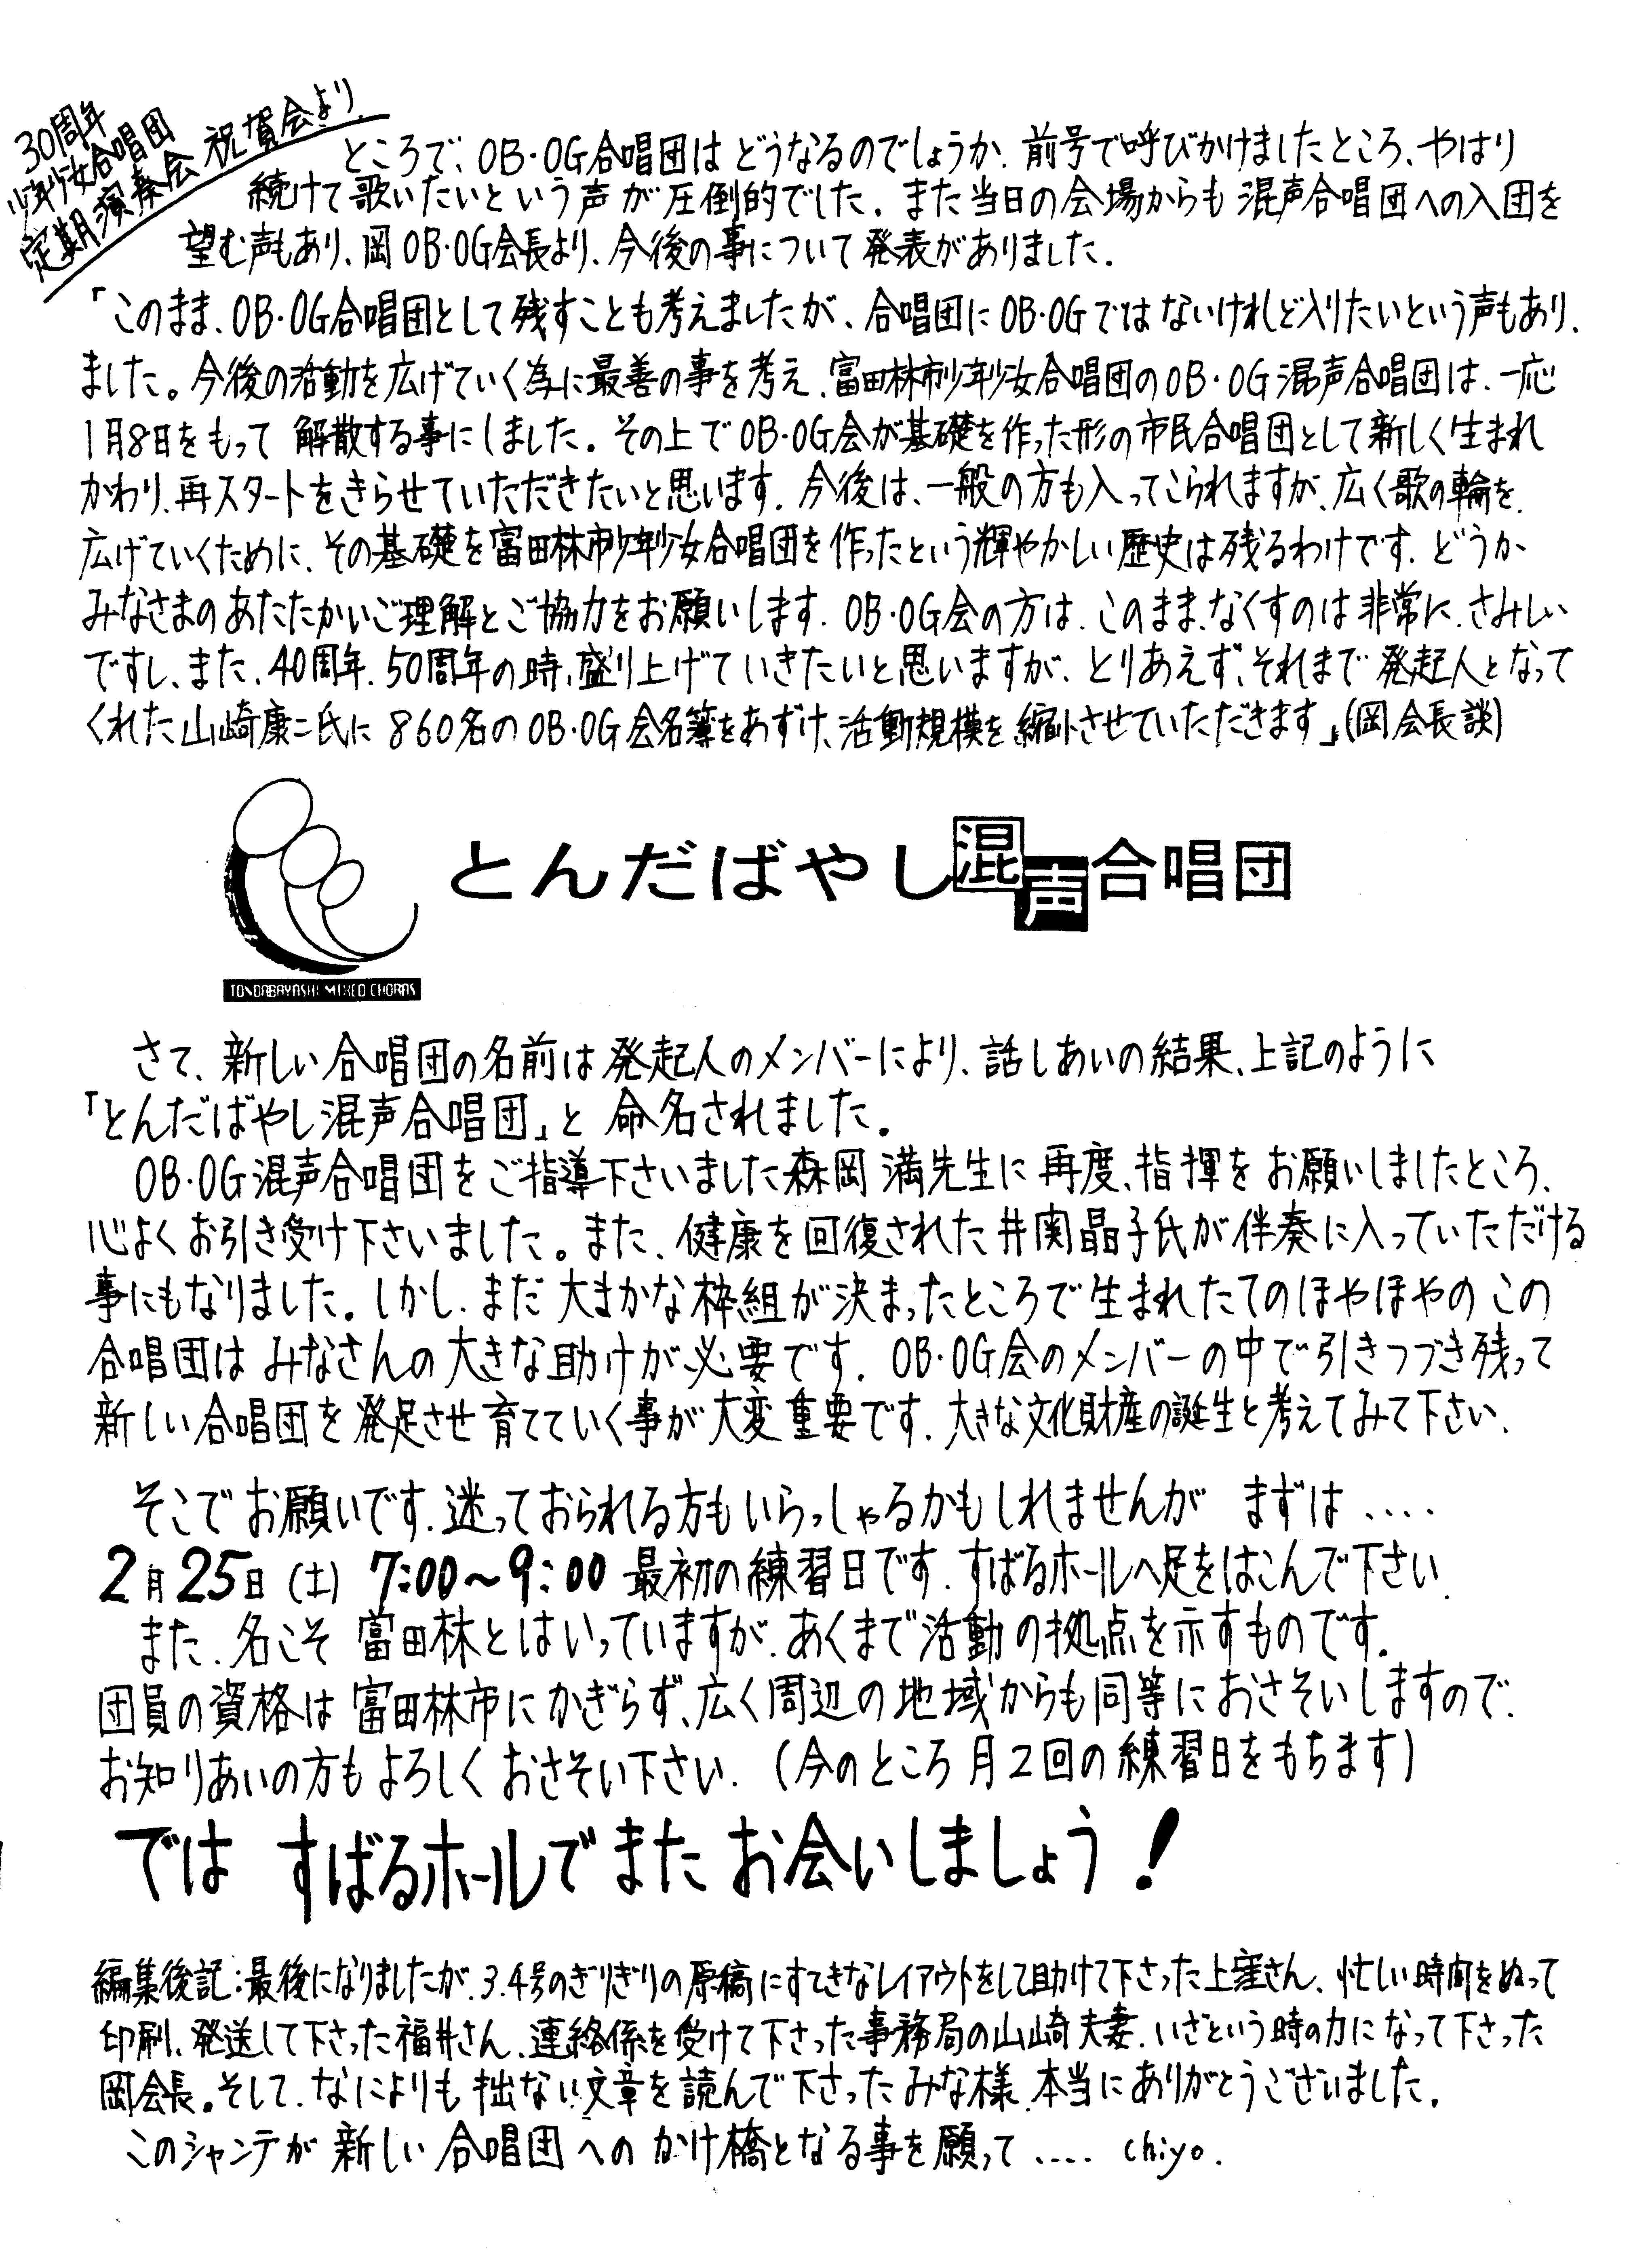 30周年
少年少女合唱団
定期演奏会 祝賀会より
ところで、OB・OG合唱団はどうなるのでしょうか. 前号で呼びかけましたところ、やはり
続けて歌いたいという声が圧倒的でした. また当日の会場からも混声合唱団への入団を
望む声もあり、岡OB・OG会長より、今後の事について発表がありました.
「このまま、OB・OG合唱団として残すことも考えましたが、合唱団にOB・OGではないけれど入りたいという声もあり.
ました。今後の活動を広げていく為に最善の事を考え、富田林市少年少女合唱団のOB・OG混声合唱団は、一応
1月8日をもって 解散する事にしました. その上でOB・OG会が基礎を作った形の市民合唱団として新しく生まれ
かわり、再スタートをきらせていただきたいと思います. 今後は、一般の方も入ってこられますが、広く歌の輪を.
広げていくために、その基礎を富田林市少年少女合唱団を作ったという輝やかしい歴史は残るわけです. どうか
みなさまのあたたかいご理解とご協力をお願いします. OB・OG会の方は、このまま、なくすのは非常に、さみしい
ですし、また、40周年、50周年の時、盛り上げていきたいと思いますが、とりあえず、それまで発起人となって
くれた山崎康二氏に860名のOB・OG会名簿をあずけ、活動規模を縮小させていただきます」(岡会長談)
とんだばやし混声合唱団
TONDABAYASHI MIXED CHORAS
さて、新しい合唱団の名前は発起人のメンバーにより、話しあいの結果、上記のように
「とんだばやし混声合唱団」と 命名されました.
OB・OG混声合唱団をご指導下さいました森岡 満先生に再度、指揮をお願いしましたところ、
心よくお引き受け下さいました。また、健康を回復された井関晶子氏が伴奏に入っていただける
事にもなりました。しかし、まだ大まかな枠組が決まったところで生まれたてのほやほやのこの
合唱団はみなさんの大きな助けが必要です. OB・OG会のメンバーの中で引きつづき残って
新しい合唱団を発足させ育てていく事が大変重要です. 大きな文化財産の誕生と考えてみて下さい.
そこでお願いです. 迷っておられる方もいらっしゃるかもしれませんが まずは....
2月25日(土) 7:00〜9:00 最初の練習日です. すばるホールへ足をはこんで下さい.
また、名こそ 富田林とはいっていますが、あくまで活動の拠点を示すものです.
団員の資格は富田林市にかぎらず、広く周辺の地域からも同等におさそいしますので.
お知りあいの方もよろしくおさそい下さい. (今のところ月2回の練習日をもちます)
では すばるホールでまたお会いしましょう!
編集後記:最後になりましたが、3.4号のぎりぎりの原稿にすてきなレイアウトをして助けて下さった上窪さん、忙しい時間をぬって
印刷、発送して下さった福井さん、連絡係を受けて下さった事務局の山崎夫妻、いざという時の力になって下さった
岡会長。そして、なによりも拙ない文章を読んで下さったみな様 本当にありがとうございました.
このシャンテが新しい合唱団へのかけ橋となる事を願って.... chiyo.